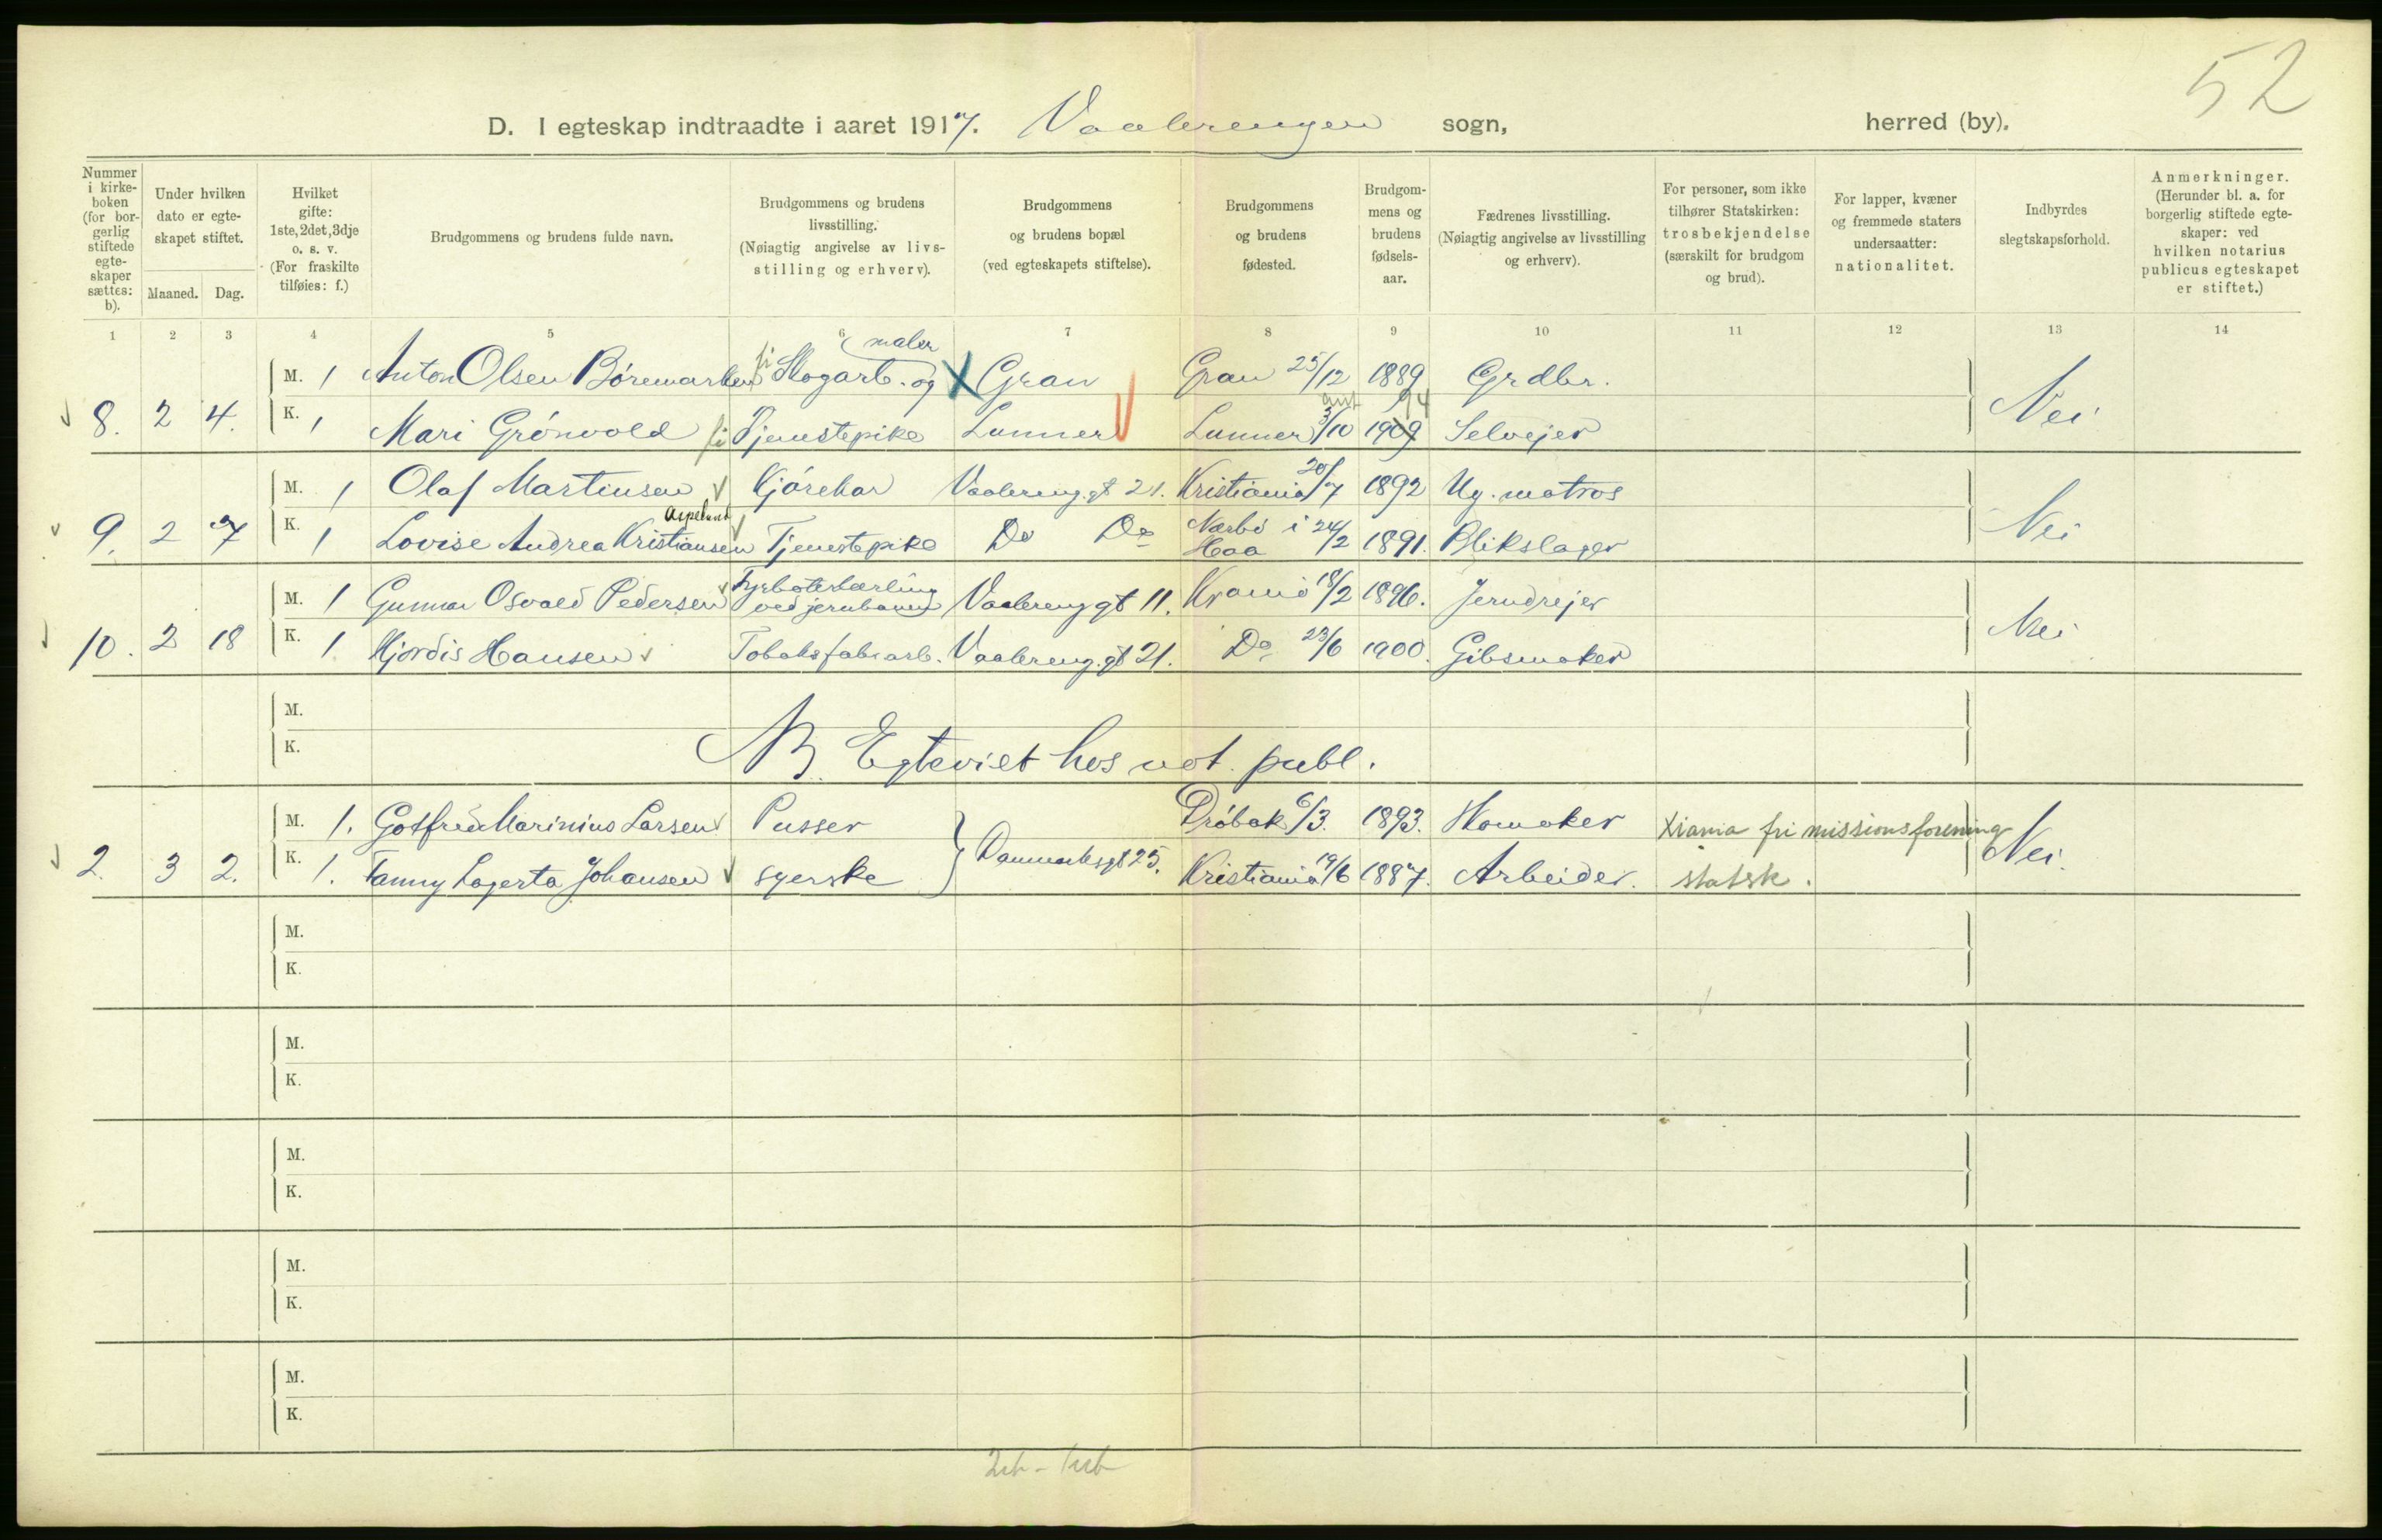 52
D. I egteskap indtraadte i aaret 1917. Vaalerengen sogn, herred (by).
Nummer i kirke-boken (for bor-gerlig stiftede egte-skaper sættes: b).
Under hvilken dato er egte-skapet stiftet.
Maaned. Dag.
Hvilket gifte: 1ste, 2det, 3dje o. s. v. (For fraskilte tilføies: f.)
Brudgommens og brudens fulde navn.
Brudgommens og brudens livsstilling. (Nøiagtig angivelse av livs-stilling og erhverv).
Brudgommens og brudens bopæl (ved egteskapets stiftelse).
Brudgommens og brudens fødested.
Brudgom-mens og brudens fødsels-aar.
Fædrenes livsstilling. (Nøiagtig angivelse av livsstilling og erhverv).
For personer, som ikke tilhører Statskirken: trosbekjendelse (særskilt for brudgom og brud).
For lapper, kvæner og fremmede staters undersaatter: nationalitet.
Indbyrdes slegtskapsforhold.
Anmerkninger. (Herunder bl. a. for borgerlig stiftede egte-skaper: ved hvilken notarius publicus egteskapet er stiftet.)
1 2 3 4 5 6 7 8 9 10 11 12 13 14
maler
M. 1 Anton Olsen Böremarken Skogarb. og X Gran Gran 25/12 1889 Grdbr.
94
8. 2 4. K. 1 Mari Grönvold Tjenestepike Lunner Lunner 3/10 1909 Selvejer Nei
M. 1 Olaf Martinsen Kjörekar Vaalereng.gt 21. Kristiania 20/7 1892 Ug. matros
Aspelund
9. 2 7 K. 1 Lovise Andrea Kristiansen Tjenestepike Do Do Nærbö i Haa 24/2 1891. Blikslager Nei
M. 1 Gunnar Osvald Pedersen Fyrböterlærling ved jernbanen Vaalerenggt 11. Krania 18/2 1896. Jerndrejer
10. 2 18 K. 1 Hjördis Hansen Tobaksfabrarb. Vaalereng.gt 21. Do 23/6 1900. Gibsmaker Nei
M.
K.
NB. Egteviet hos not. publ.
M. 1. Gotfred Marinius Larsen Pusser Dröbak 6/3. 1893. Skomaker Xiania fri missionsforening
2. 3 2. K. 1. Fanny Lagerta Johansen syerske Danmarksgt 25. Kristiania 19/6 1887. Arbeider. statsk. Nei.
M.
K.
M.
K.
M.
K.
M.
K.
M.
K.